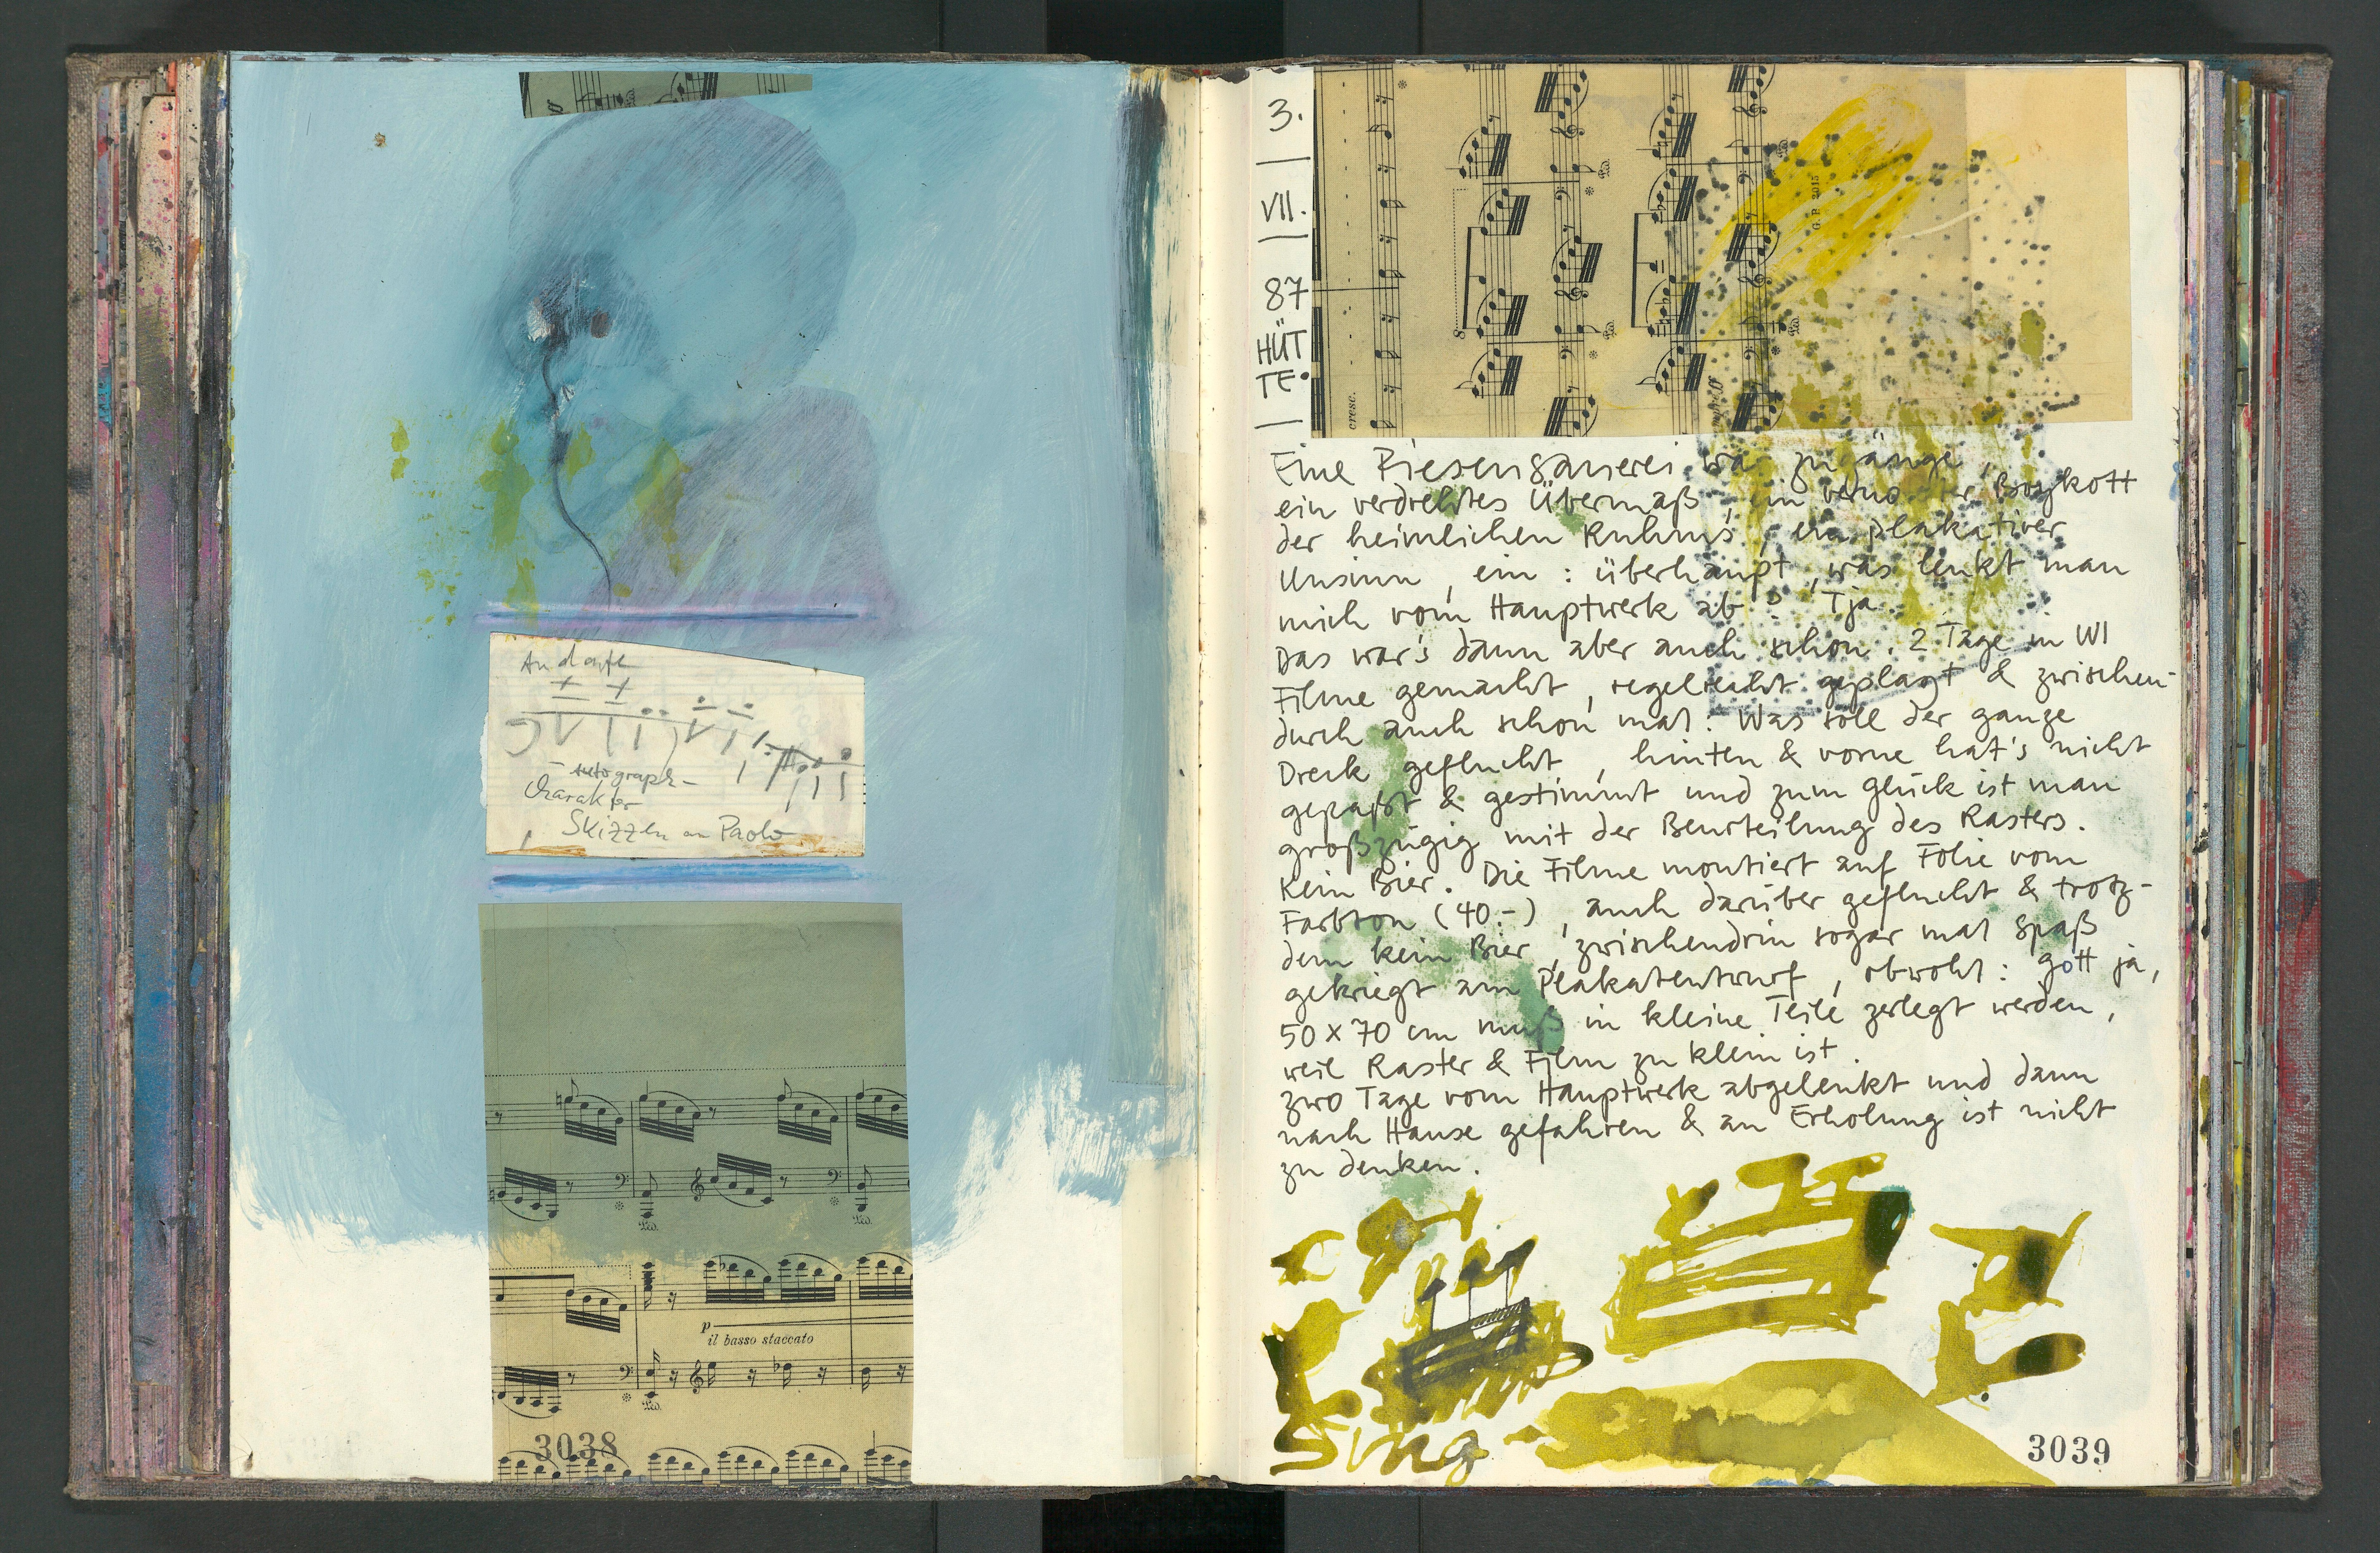 Andante
- Autograph -
Charakter
Skizzen an Paolo
p
il basso staccato
3038
3.
VII.
87
HÜT
TE.
cresc.
G. P. 2015
Eine Riesengaunerei war zugange,
ein verdrehtes Übermaß, ein Boykott
der heimlichen Ruhms, ein plakativer
Unsinn, ein: überhaupt, was lenkt man
mich vom Hauptwerk ab? Tja.
Das war's dann aber auch schon. 2 Tage in WI
Filme gemacht, regelrecht geplagt & zwischen-
durch auch schon mal: Was soll der ganze
Dreck geflucht, hinten & vorne hat's nicht
gepaßt & gestimmt und zum Glück ist man
großzügig mit der Beurteilung des Rasters.
Kein Bier. Die Filme montiert auf Folie vom
Farbton (40.-), auch darüber geflucht & trotz-
dem kein Bier, zwischendrin sogar mal Spaß
gekriegt am Plakatentwurf, obwohl: gott ja,
50 x 70 cm muß in kleine Teile zerlegt werden,
weil Raster & Film zu klein ist.
Zwo Tage vom Hauptwerk abgelenkt und dann
nach Hause gefahren & an Erholung ist nicht
zu denken.
Sing
3039